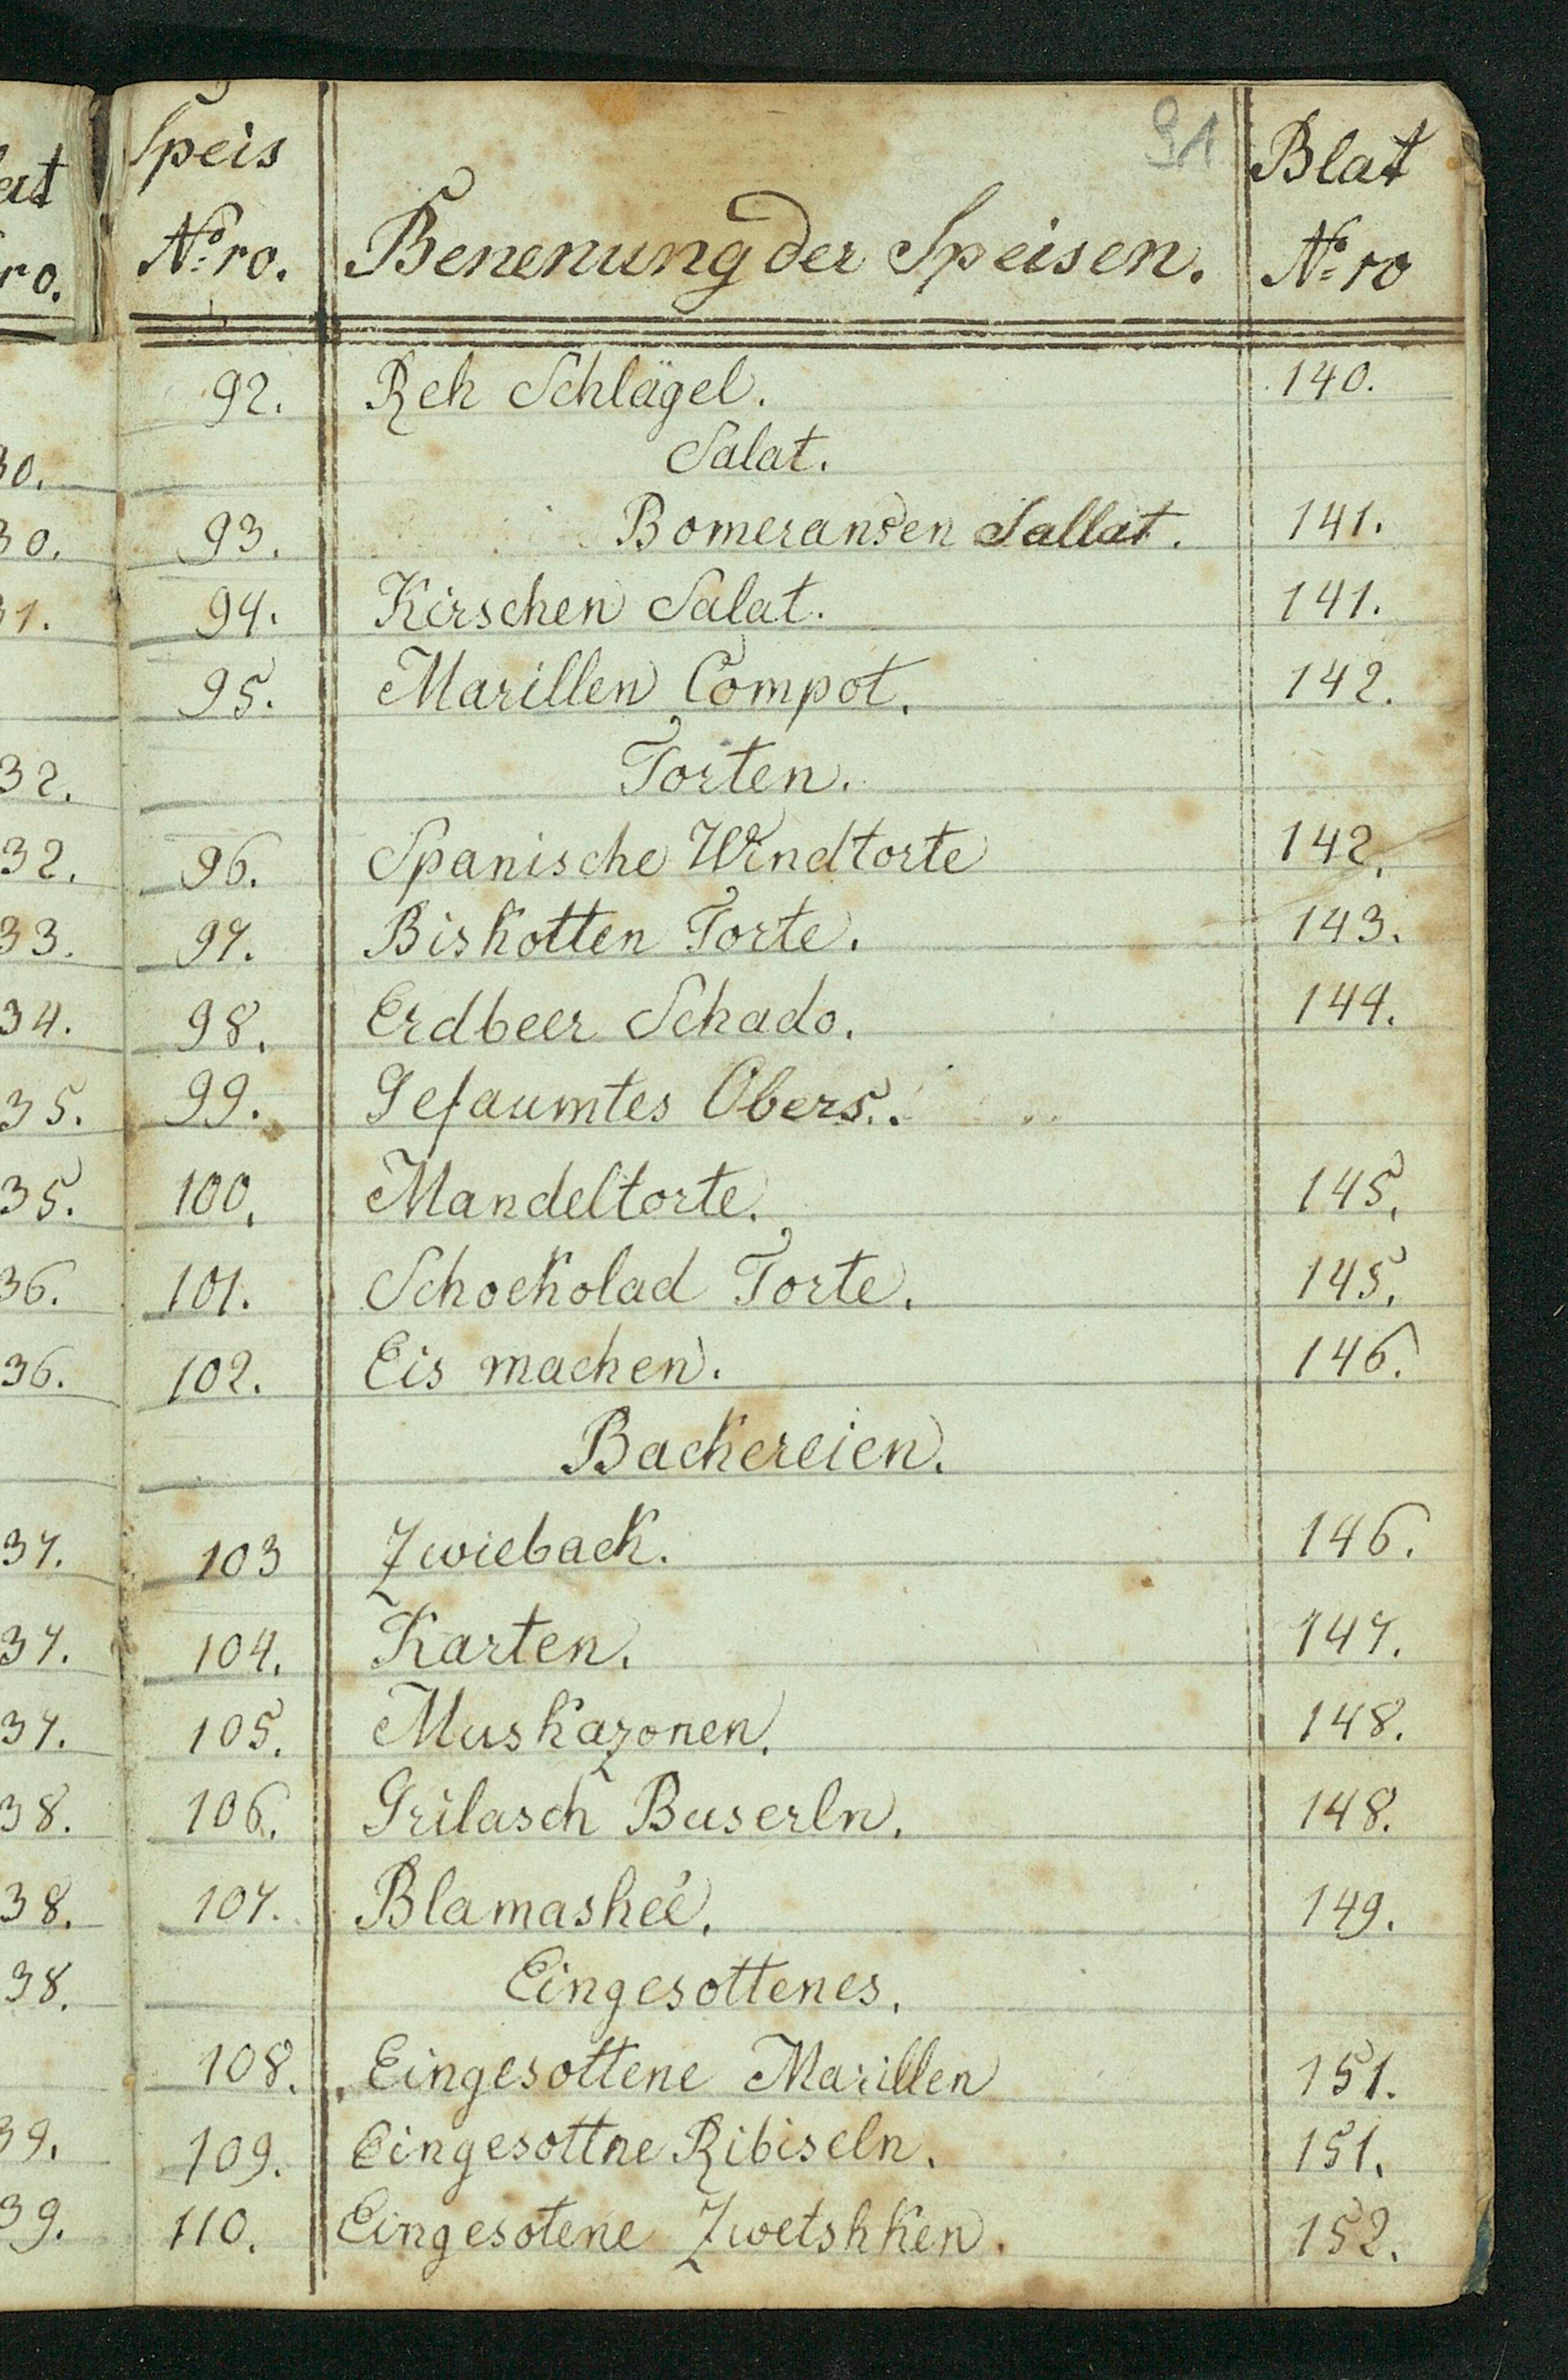 91
Speis Blat
Nro. Benenung der Speisen. Nro
92. Reh Schlägel. 140.
Salat.
93. Bomeransen Sallat. 141.
94. Kirschen Salat. 141.
95. Marillen Compot. 142.
Torten.
96. Spanische Windtorte 142.
97. Biskotten Torte. 143.
98. Erdbeer Schado. 144.
99. Gefaumtes Obers.
100. Mandeltorte. 145.
101. Schockolad Torte. 145.
102. Eis machen. 146.
Backereien.
103 Zwieback. 146.
104. Karten. 147.
105. Muskazonen. 148.
106. Grilasch Buserln. 148.
107. Blamasheé. 149.
Eingesottenes.
108. Eingesottene Marillen 151.
109. Eingesottne Ribiseln. 151.
110. Eingesotene Zwetshken. 152.
at
ro.
30.
30.
31.
32.
32.
33.
34.
35.
35.
36.
36.
37.
37.
37.
38.
38.
38.
39.
39.